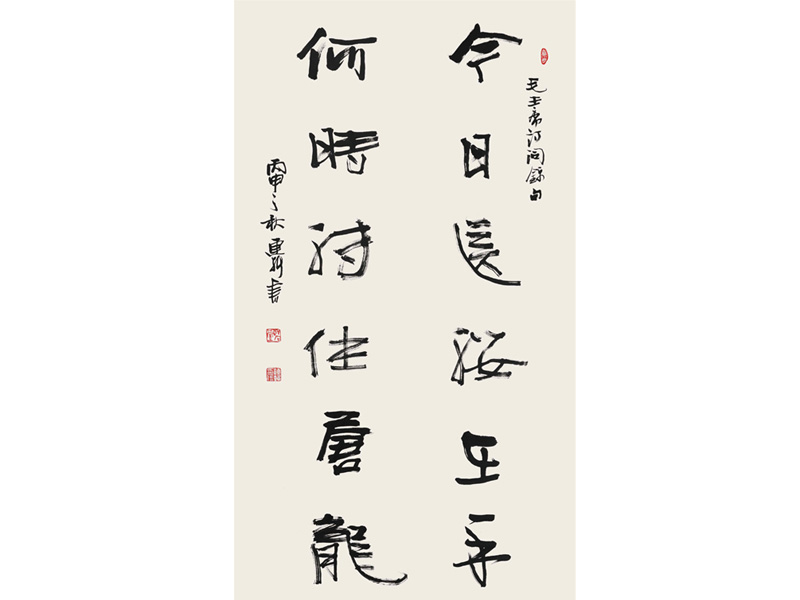 毛主席詩詞錄句
今日長纓在手
何時縛住蒼龍
丙申之秋書